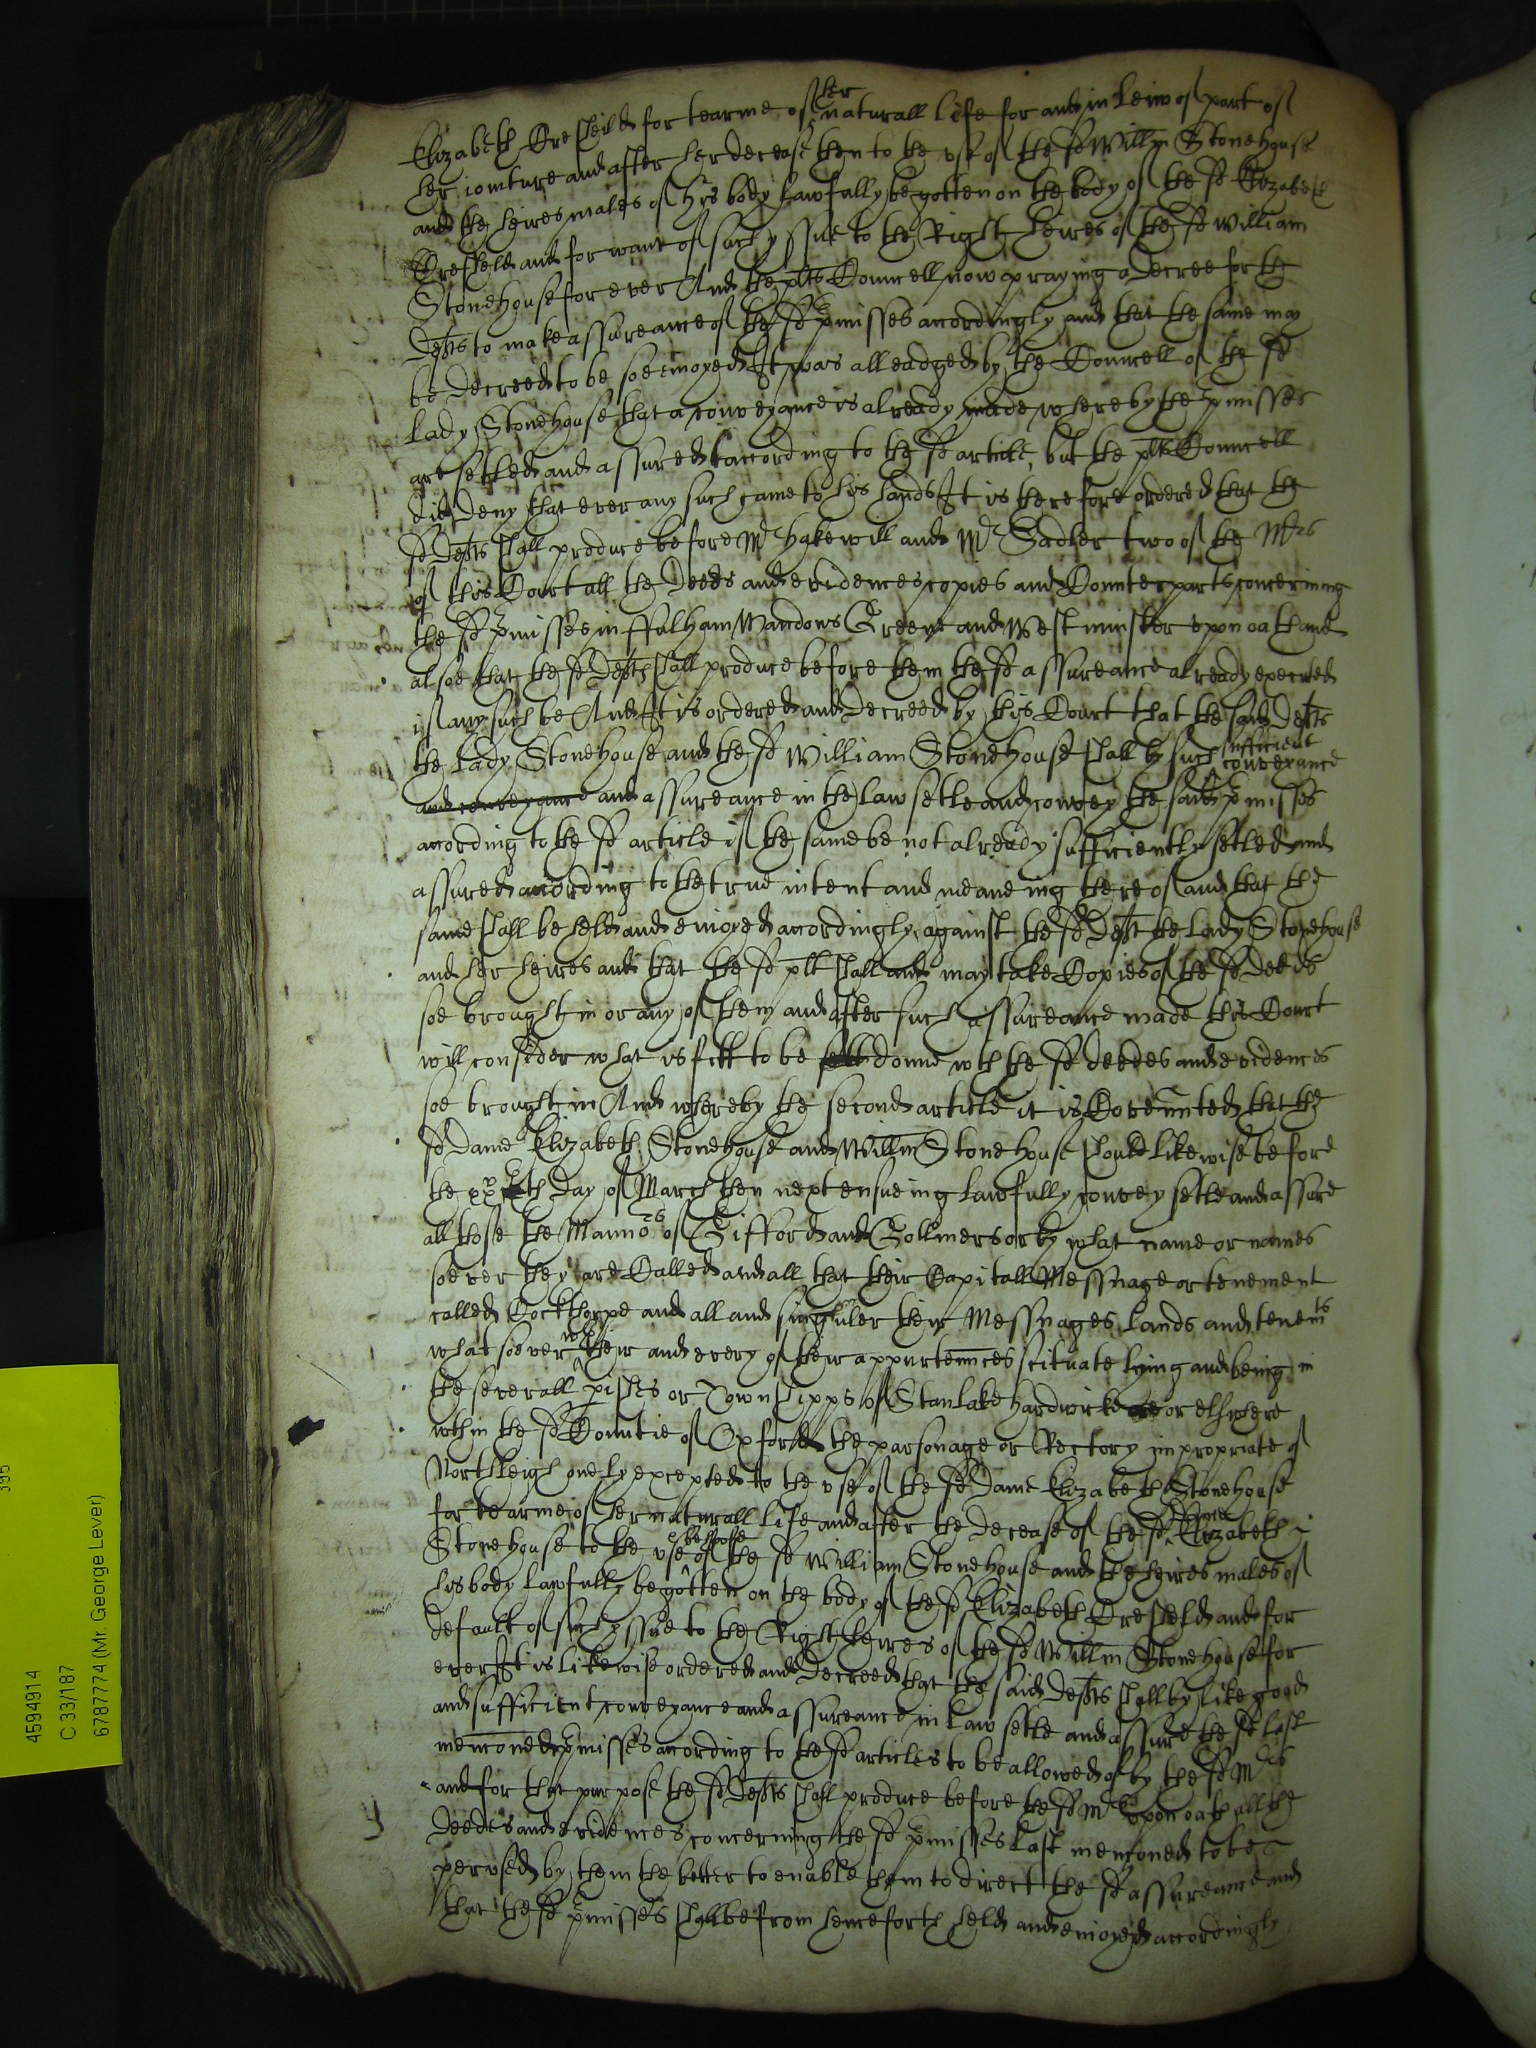 Elizabeth Dresfeild for tearme of her naturall life for and in leiw of part of
her ioynture and after her decease then to the use of the sd Willm Stonehouse
and the heires males of his body lawfully begotten on the body of the sd Elizabeth
Dresfeld and for want of such yssue to the Right heires of the sd William
Stonehouse for ever And the plts Councell now praying a decree for the
Defts to make assureance of the sd pmisses accordingly and that the same may
be decreed to be soe enioyed It was alleadged by the Councell of the sd
Lady Stonehouse that a conveyance is already made whereby the pmisses
are setled and assured according to the sd article, but the plts Councell
did deny that ever any such came to his hands It is therefore ordered that the
sd Defts shall produce before Mr hakewill and Mr Sadler two of the Mrs
of this Court all the Deeds and evidences copies and Counterparts concerning
the sd pmisses in ffulham Greene and Westminster upon oath and
alsoe that the sd Defts shall produce before them the sd assureance already executed
if any such be And It is ordered and Decreed by this Court that the said Defts
the Lady Stonehouse and the sd William Stonehouse shall by such sufficient conveyance
and conveyance and assureance in the law setle and convey the said pmisses
according to the sd article if the same be not already sufficiently setled and
assured according to the true intent and meaneing thereof and that the
same shall be held and enioyed accordingly against the sd Deft the Lady Stonehouse
and her heires and that the sd plt shall and may take Copies of the sd deeds
soe brought in or any of them and after such assureance made this Court
will consider what is fitt to be donne wth the sd deedes and evidences
soe brought in And whereby the second article it is Covenñted that the
sd Dame Elizabeth Stonehouse and Willm Stonehouse should likewise before
the th day of March then next ensueing lawfully convey setle and assure
all those the Mannors of Gifford and Gollmers or by what name or names
soever they are Called and all that their Capitall Messuage or tenement
called Cockthorpe and all and singuler their Messuages Lands and tenemts
whatsoever wth their and every of their appurtennces scituate lying and being in
the severall pishes or Townshipps of Stanlake hardwicke or elswhere
wthin the sd Countie of Oxford the parsonage or Rectory impropriate of
Northleigh onely excepted to the use of the sd Dame Elizabeth Stonehouse
for tearme of her naturall life and after the decease of the sd Dame Elizabeth
Stonehouse to the use &behoofe of the sd William Stonehouse and the heires males of
his body lawfully begotten on the body of the sd Elizabeth Dresfeld and for
default of such yssue to the Right heires of the sd Willm Stonehouse for
ever It is likewise ordered and Decreed that the said Defts shall by like good
and sufficient conveyance and assureance in law setle and assure the sd last
mencõned pmisses according to the sd articles to be allowed of by the sd Mrs
and for that purpose the sd Defts shall produce before the sd Mrs upon oath all the
deedes and evidences concerning the sd pmisses last mencõned to be
perused by them the better to enable them to direct the sd assureance and
that the sd pmisses shalbe from henceforth held and enioyed accordingly
395
4594914
C 33/187
6787774 (Mr. George Lever)